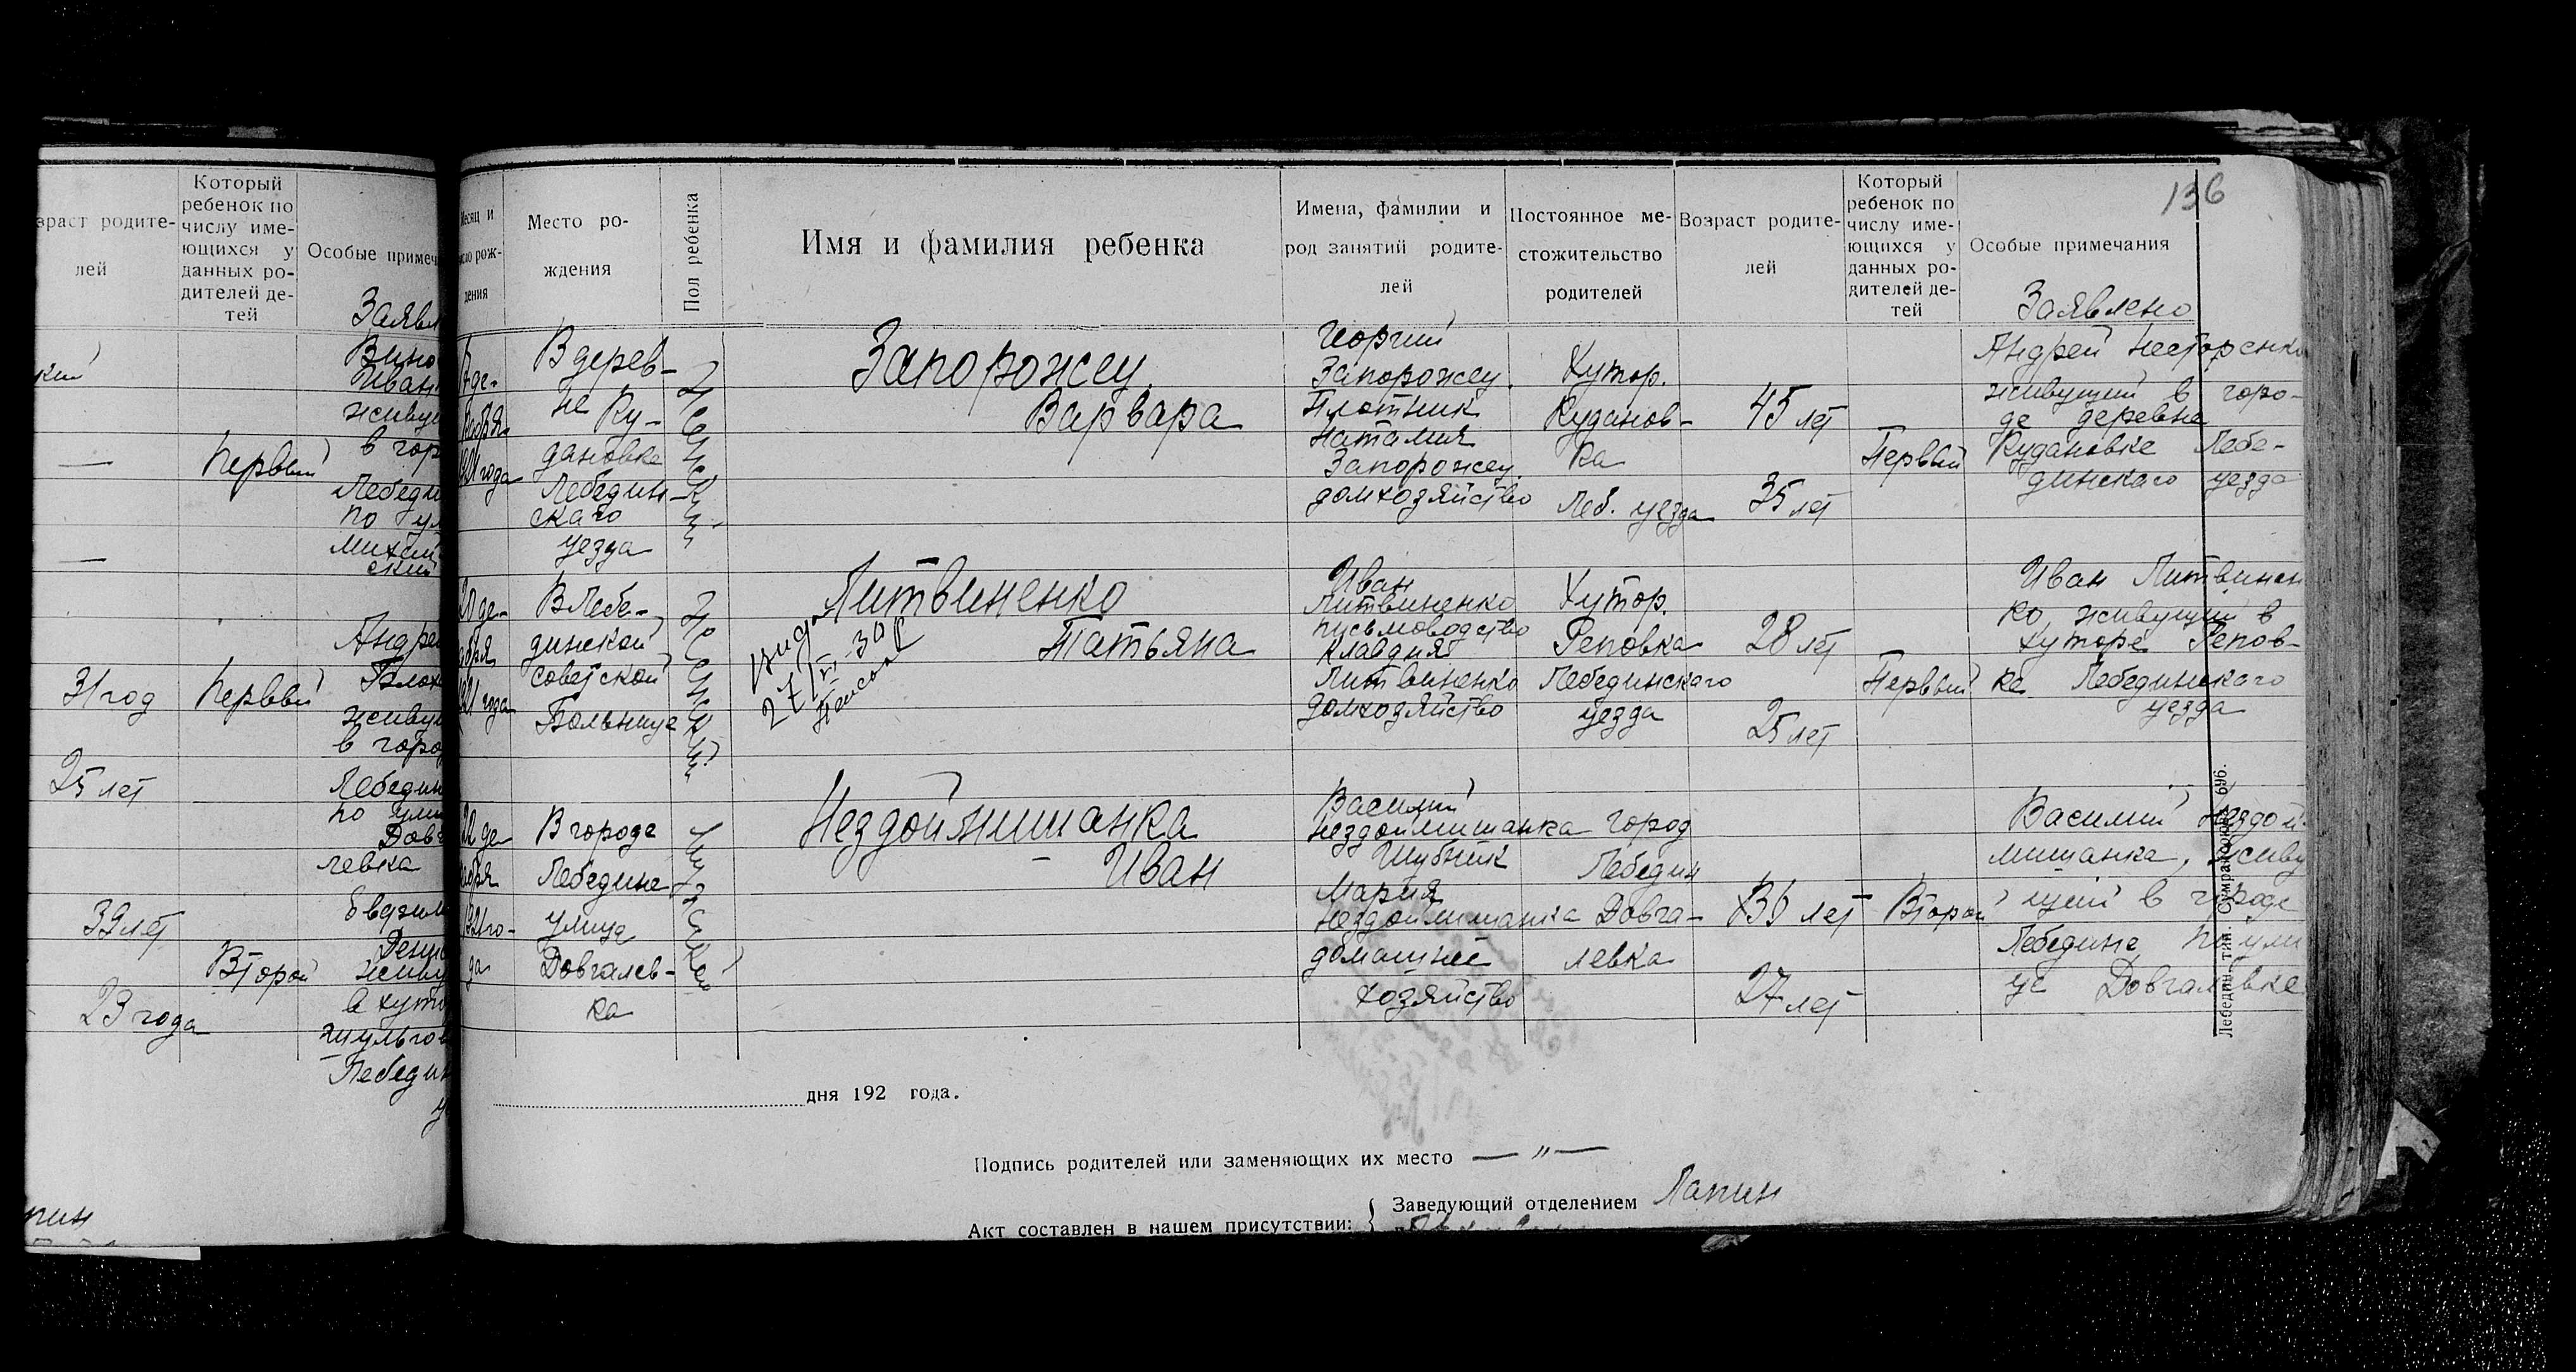 зраст родите-
лей
Который
ребенок по
числу име-
ющихся у
данных ро-
дителей де-
тей
Особые примеч
Заявл
кий
—
Первый
—
Вино
Иван
живу
в гор
Лебеди
по ул
Михай
ский
31 год
Первый
25 лет
Андре
живу
в горо
Лебедин
по ули
Довг
левка
39 лет
Второй
23 года
живу
в хуто
Лебедин
у
пин
136
Месяц и
число рож-
дения
Место ро-
ждения
Пол ребенка
Имя и фамилия ребенка
Имена, фамилии и
род занятий родите-
лей
Постоянное ме-
стожительство
родителей
Возраст родите-
лей
Который
ребенок по
числу име-
ющихся у
данных ро-
дителей де-
тей
Особые примечания
Заявлено
де-
кабря
1921 года
В дерев-
не Ку-
дановке
Лебедин-
скаго
уезда
Женский
Запорожец
Варвара
Георгий
Запорожец.
Плотник
Наталия
Запорожец
домхозяйство
Хутор.
Куданов-
ка
Леб. уезда
45 лет
35 лет
Первый
Андрей Несторенко
живущий в горо-
де деревне
Кудановке Лебе-
динскаго уезда
20 де-
кабря
1921 года
В Лебе-
динской
советской
Больнице
Женский
Литвиненко
Татьяна
27/VI-30
Иван
Литвиненко
письмоводство
Клавдия
Литвиненко
домхозяйство
Хутор.
Реповка
Лебединскаго
уезда
28 лет
25 лет
Первый
Иван Литвинен
ко, живущий в
хуторе Репов-
ке Лебединскаго
уезда
22 де
кабря
1921 го-
да
В городе
Лебедине
улица
Довгалев-
ка
Мужской
Нездойминанка
Иван
Василий
Нездойминанка
Шубник
Мария
Нездойминанка
домашнее
хозяйство
город
Лебедин
Довга-
левка
39 лет
27 лет
Второй
Василий Нездой-
минанка, живу
щий в городе
Лебедине по ули
це Довгалевке
Лебедин, тип. Сумракооро. 696.
дня 192 года.
Подпись родителей или заменяющих их место — " —
Акт составлен в нашем присутствии: { Заведующий отделением Лапин